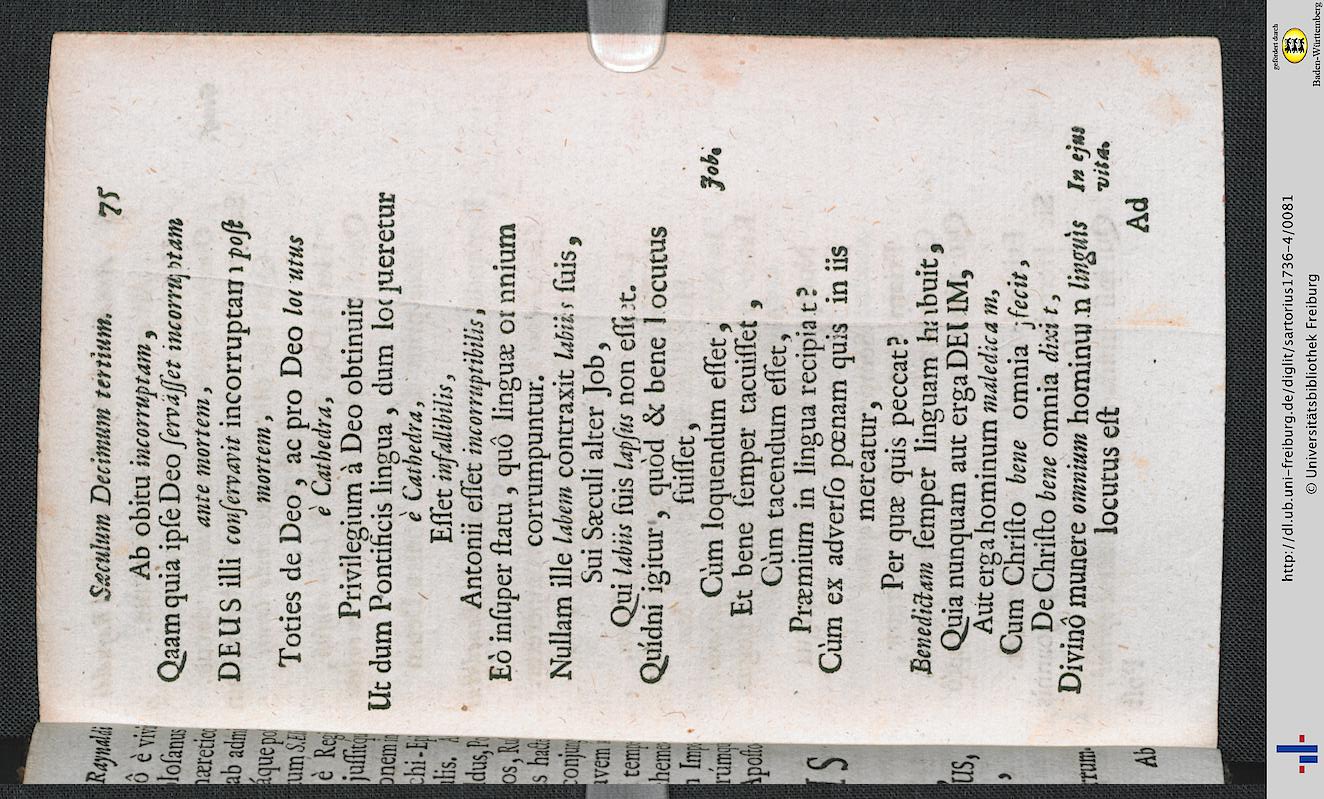 Sæculum Decimum tertium. 75
Ab obitu incorruptam,
Qaam quia ipſe Deo ſerväſſet incorruptam
ante mortem,
DEUS illi conſervavit incorruptam poſt
mortem,
Toties de Deo, ac pro Deo locutus
è Cathedra,
Privilegium à Deo obtinuit
Ut dum Pontificis lingua, dum loqueretur
è Cathedra,
Eſſet infallibilis,
Antonii eſſet incorruptibilis,
Eò inſuper ſtatu, quô linguæ omnium
corrumpuntur.
Nullam ille labem contraxit labiis ſuis,
Sui Sæculi alter Job,
Qui labiis ſuis lapſus non eſſet.
Quidni igitur, quòd & bene locutus
fuiſſet,
Job.
Cùm loquendum eſſet,
Et bene ſemper tacuiſſet,
Cùm tacendum eſſet,
Præmium in lingua recipiat?
Cùm ex adverſo pœnam quis in iis
mereatur,
Per quæ quis peccat?
Benedictam ſemper linguam habuit,
Quia nunquam aut erga DEUM,
Aut erga hominum maledicam,
Cum Chriſto bene omnia fecit,
De Chriſto bene omnia dixit,
Divinô munere omnium hominum linguis
In ejus
vita.
locutus eſt
Ad
Raynaldi
ô è
loſanus
hæretico
IS
Ab
http://dl.ub.uni-freiburg.de/diglit/sartorius1736-4/0081
© Universitätsbibliothek Freiburg
gefördert durch
Baden-Württemberg